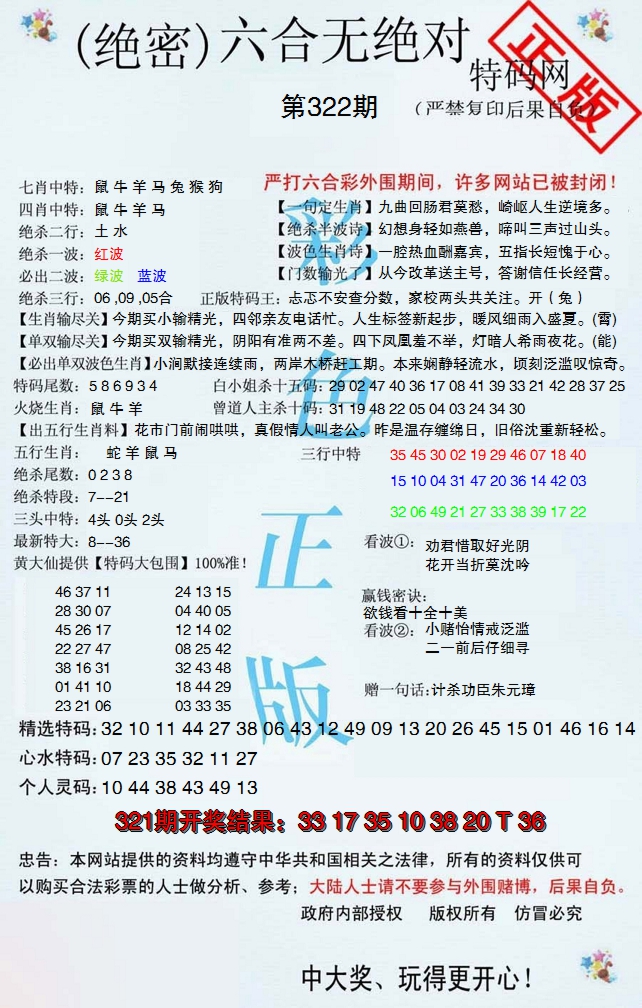 (绝密)六合无绝对
特码网
正版
第322期
(严禁复印后果自负)
七肖中特：鼠 牛 羊 马 兔 猴 狗
严打六合彩外围期间，许多网站已被封闭！
四肖中特：鼠 牛 羊 马
【一句定生肖】九曲回肠君莫愁，崎岖人生逆境多。
绝杀二行：土 水
【绝杀半波诗】幻想身轻如燕兽，啼叫三声过山头。
绝杀一波：红波
【波色生肖诗】一腔热血酬嘉宾，五指长短愧于心。
必出二波：绿波 蓝波
【门数输光了】从今改革送主号，答谢信任长经营。
绝杀三行：06 ,09 ,05合
正版特码王：志忑不安查分数，家校两头共关注。开（ 兔 ）
【生肖输尽关】今期买小输精光，四邻亲友电话忙。人生标签新起步，暖风细雨入盛夏。(雷)
【单双输尽关】今期买双输精光，阴阳有准两不差。四下凤凰羞不举，灯暗人希雨夜花。(能)
【必出单双波色生肖】小涧默接连续雨，两岸木桥赶工期。本来娴静轻流水，顷刻泛滥叹惊奇。
特码尾数：5 8 6 9 3 4
白小姐杀十五码：29 02 47 40 36 17 08 41 39 33 21 42 28 37 25
火烧生肖： 鼠 牛 羊
曾道人主杀十码：31 19 48 22 05 04 03 24 34 30
【出五行生肖料】花市门前闹哄哄，真假情人叫老公。昨是温存缠绵日，旧俗沈重新轻松。
五行生肖： 蛇 羊 鼠 马
三行中特
35 45 30 02 19 29 46 07 18 40
绝杀尾数：0 2 3 8
15 10 04 31 47 20 36 14 42 03
绝杀特段：7--21
三头中特：4头 0头 2头
32 06 49 21 27 33 38 39 17 22
最新特大：8--36
看波①： 劝君惜取好光阴
花开当折莫沈吟
黄大仙提供【特码大包围】100%准！
46 37 11 24 13 15
28 30 07 04 40 05
45 26 17 12 14 02
22 27 47 08 25 42
38 16 31 32 43 48
01 41 10 18 44 29
23 21 06 03 33 35
赢钱密诀：
欲钱看十全十美
看波②： 小赌怡情戒泛滥
二一前后仔细寻
赠一句话:计杀功臣朱元璋
彩色正版
精选特码：32 10 11 44 27 38 06 43 12 49 09 13 20 26 45 15 01 46 16 14
心水特码：07 23 35 32 11 27
个人灵码：10 44 38 43 49 13
321期开奖结果：33 17 35 10 38 20 T 36
忠告：本网站提供的资料均遵守中华共和国相关之法律，所有的资料仅供可
以购买合法彩票的人士做分析、参考；大陆人士请不要参与外围赌博，后果自负。
政府内部授权 版权所有 仿冒必究
中大奖、玩得更开心！